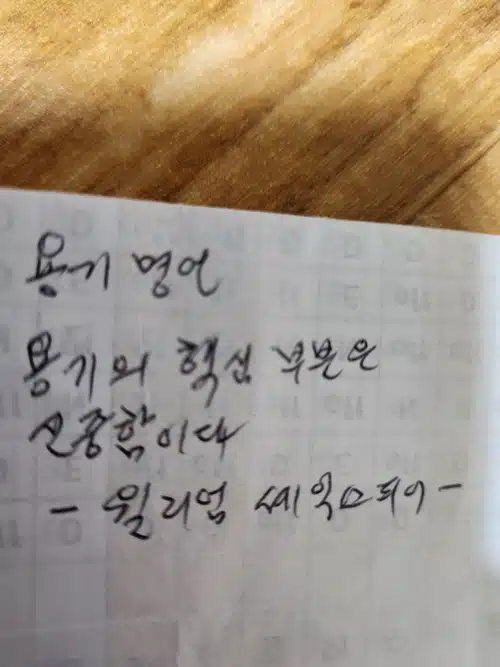 용기 명언
용기의 핵심 부분은
신중함이다
- 윌리엄 셰익스피어 -